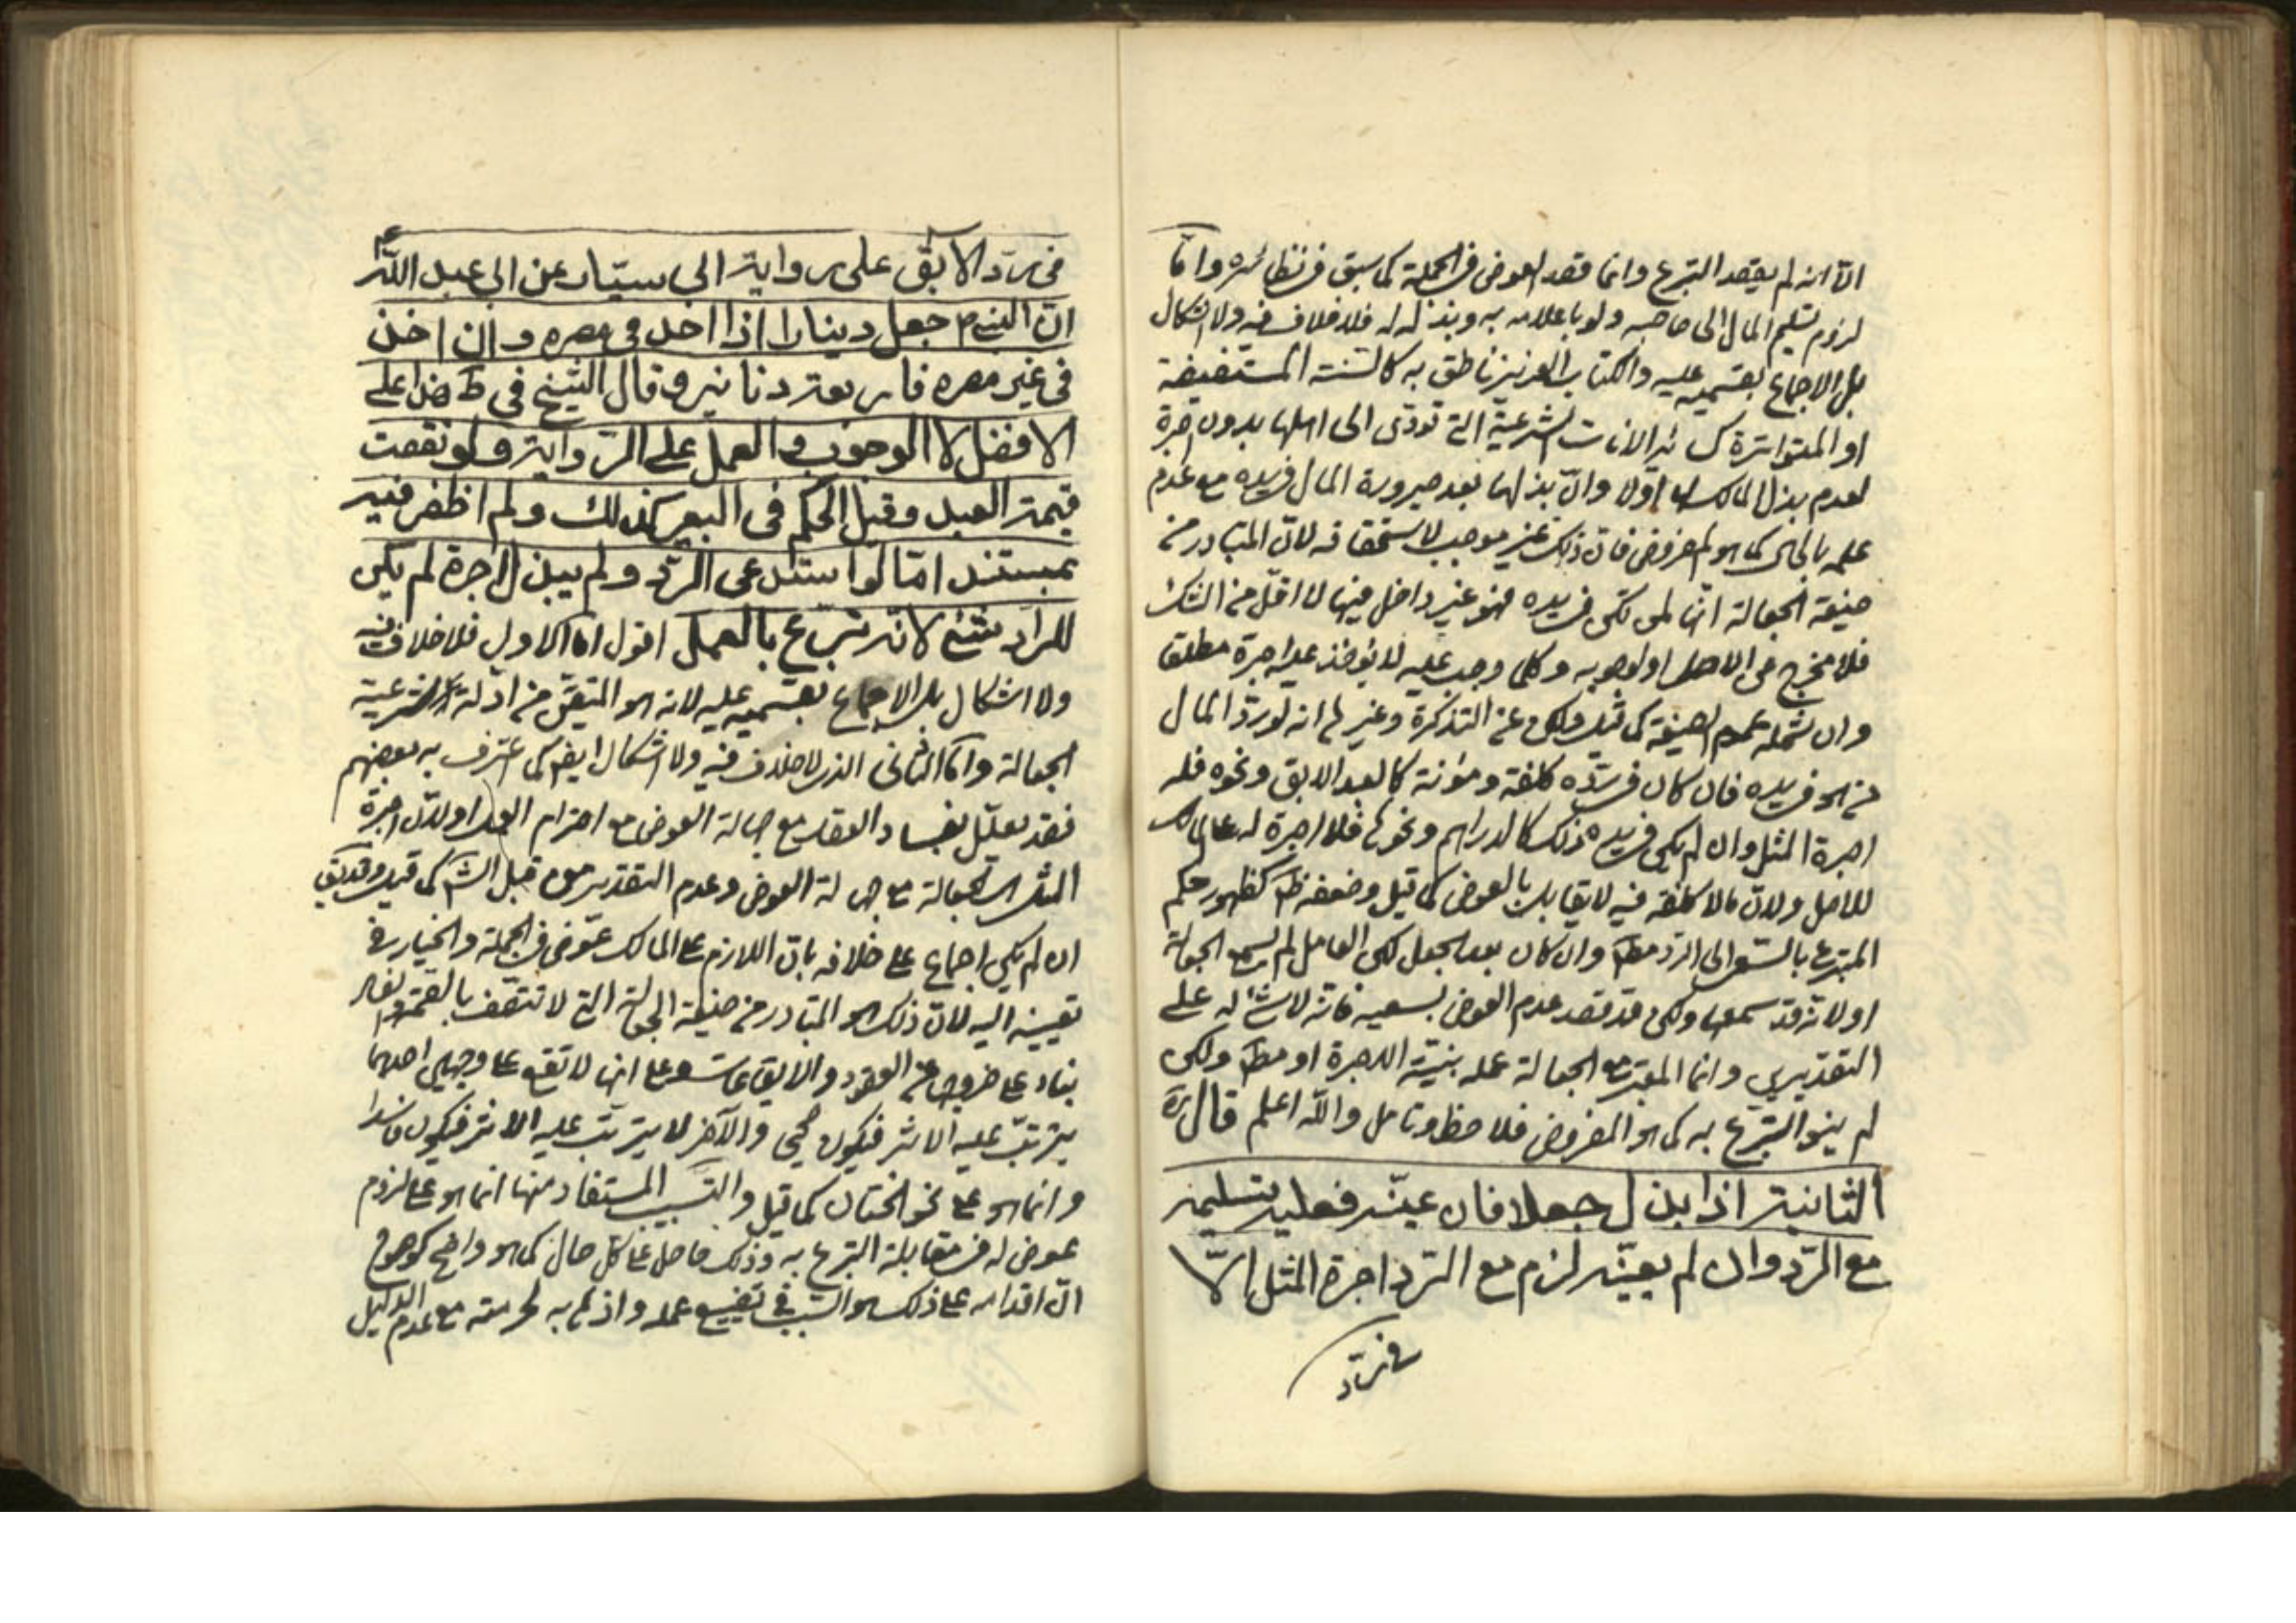 الا انه لم يقصد التبرع وانما قصد العوض في الجملة كما سبق في نظائره واما
لزوم تسليم المال الى صاحبه ولو باعلامه به وبذله له فلا خلاف فيه ولا اشكال
بل الاجماع بقسميه عليه والكتاب العزيز ناطق به كالسنة المستفيضة
او المتواترة كسائر الامانات الشرعية التي تؤدى الى اهلها بدون اجرة
لعدم بذل المالك لها اولا وان بذلها بعد صيرورة المال في يده مع عدم
علمه بالحال كما هو المفروض فان ذلك غير موجب لاستحقاقه لان المتبادر من
صيغة الجعالة انها لمن لم يكن في يده فهو غير داخل فيها لا اقل من الشك
فلا مخرج عن الاصل او لوجوبه وكلما وجب عليه لا يؤخذ عليه اجرة مطلقا
وان شمله عموم الصيغة كما قيل ولكن عن التذكرة وغيرها انه لو رد المال
من هو في يده فان كان في رده كلفة ومؤنة كالعبد الآبق ونحوه فله
اجرة المثل وان لم يكن في يده ذلك كالدراهم ونحوها فلا اجرة له على المالك
للاصل ولان ما لا كلفة فيه لا يقابل بالعوض كما قيل وضعفه ظ كظهور حكم
المتبرع بالسعي الى الرد مط وان كان بعد الجعل لكن العامل لم يسمع الجعالة
او لانه قد سمعها ولكن قد قصد عدم العوض بسعيه فانه لا شيء له على
التقديرين وانما المعتبر مع الجعالة عمله بنية الاجرة او مط ولكن
لم ينو التبرع به كما هو المفروض فلاحظ وتامل والله اعلم قال ره
الثانية اذا بذل جعلا فان عينه فعليه تسليمه
مع الرد وان لم يعينه لزم مع الرد اجرة المثل الا
في رد
في رد الآبق على رواية ابي سيار عن ابي عبد الله ع
ان النبي ص جعل دينارا اذا اخذ في مصره وان اخذ
في غير مصره فاربعة دنانير وقال الشيخ في ط هذا على
الافضل لا الوجوب والعمل على الرواية ولو نقصت
قيمة العبد وقيل الحكم في البعير كذلك ولم اظفر فيه
بمستند اما لو استدعى الرد ولم يبذل اجرة لم يكن
للراد شيء لانه تبرع بالعمل اقول اما الاول فلا خلاف فيه
ولا اشكال بل الاجماع بقسميه عليه لانه هو المتيقن من ادلة شرعية
الجعالة واما الثاني الذي لا خلاف فيه ولا اشكال ايضا كما اعترف به بعضهم
فقد يعلل بفساد العقد مع جهالة العوض مع احترام العمل او لان اجرة
المثل الجعالة مع جهالة العوض وعدم التقدير من قبل الش كما قيل وقد يق
ان لم يكن اجماع على خلافه بان اللازم على المالك عوض في الجملة والخيار في
تعيينه اليه لان ذلك هو المتبادر من صيغة الجعالة التي لا تتصف بالصحة والفساد
بناء على خروجها عن العقود والايقاعات وعلى انها لا تقع على وجهين احدهما
يترتب عليه الاثر فيكون صحيحا والآخر لا يترتب عليه الاثر فيكون فاسدا
وانما هو على نحو الختان كما قيل والتسبيب المستفاد منها انما هو على لزوم
عوض له في مقابلة التبرع به وذلك حاصل على كل حال كما هو واضح كوضوح
ان اقدامه على ذلك هو السبب في تضييع عمله واذهابه لحرمته مع عدم الدليل